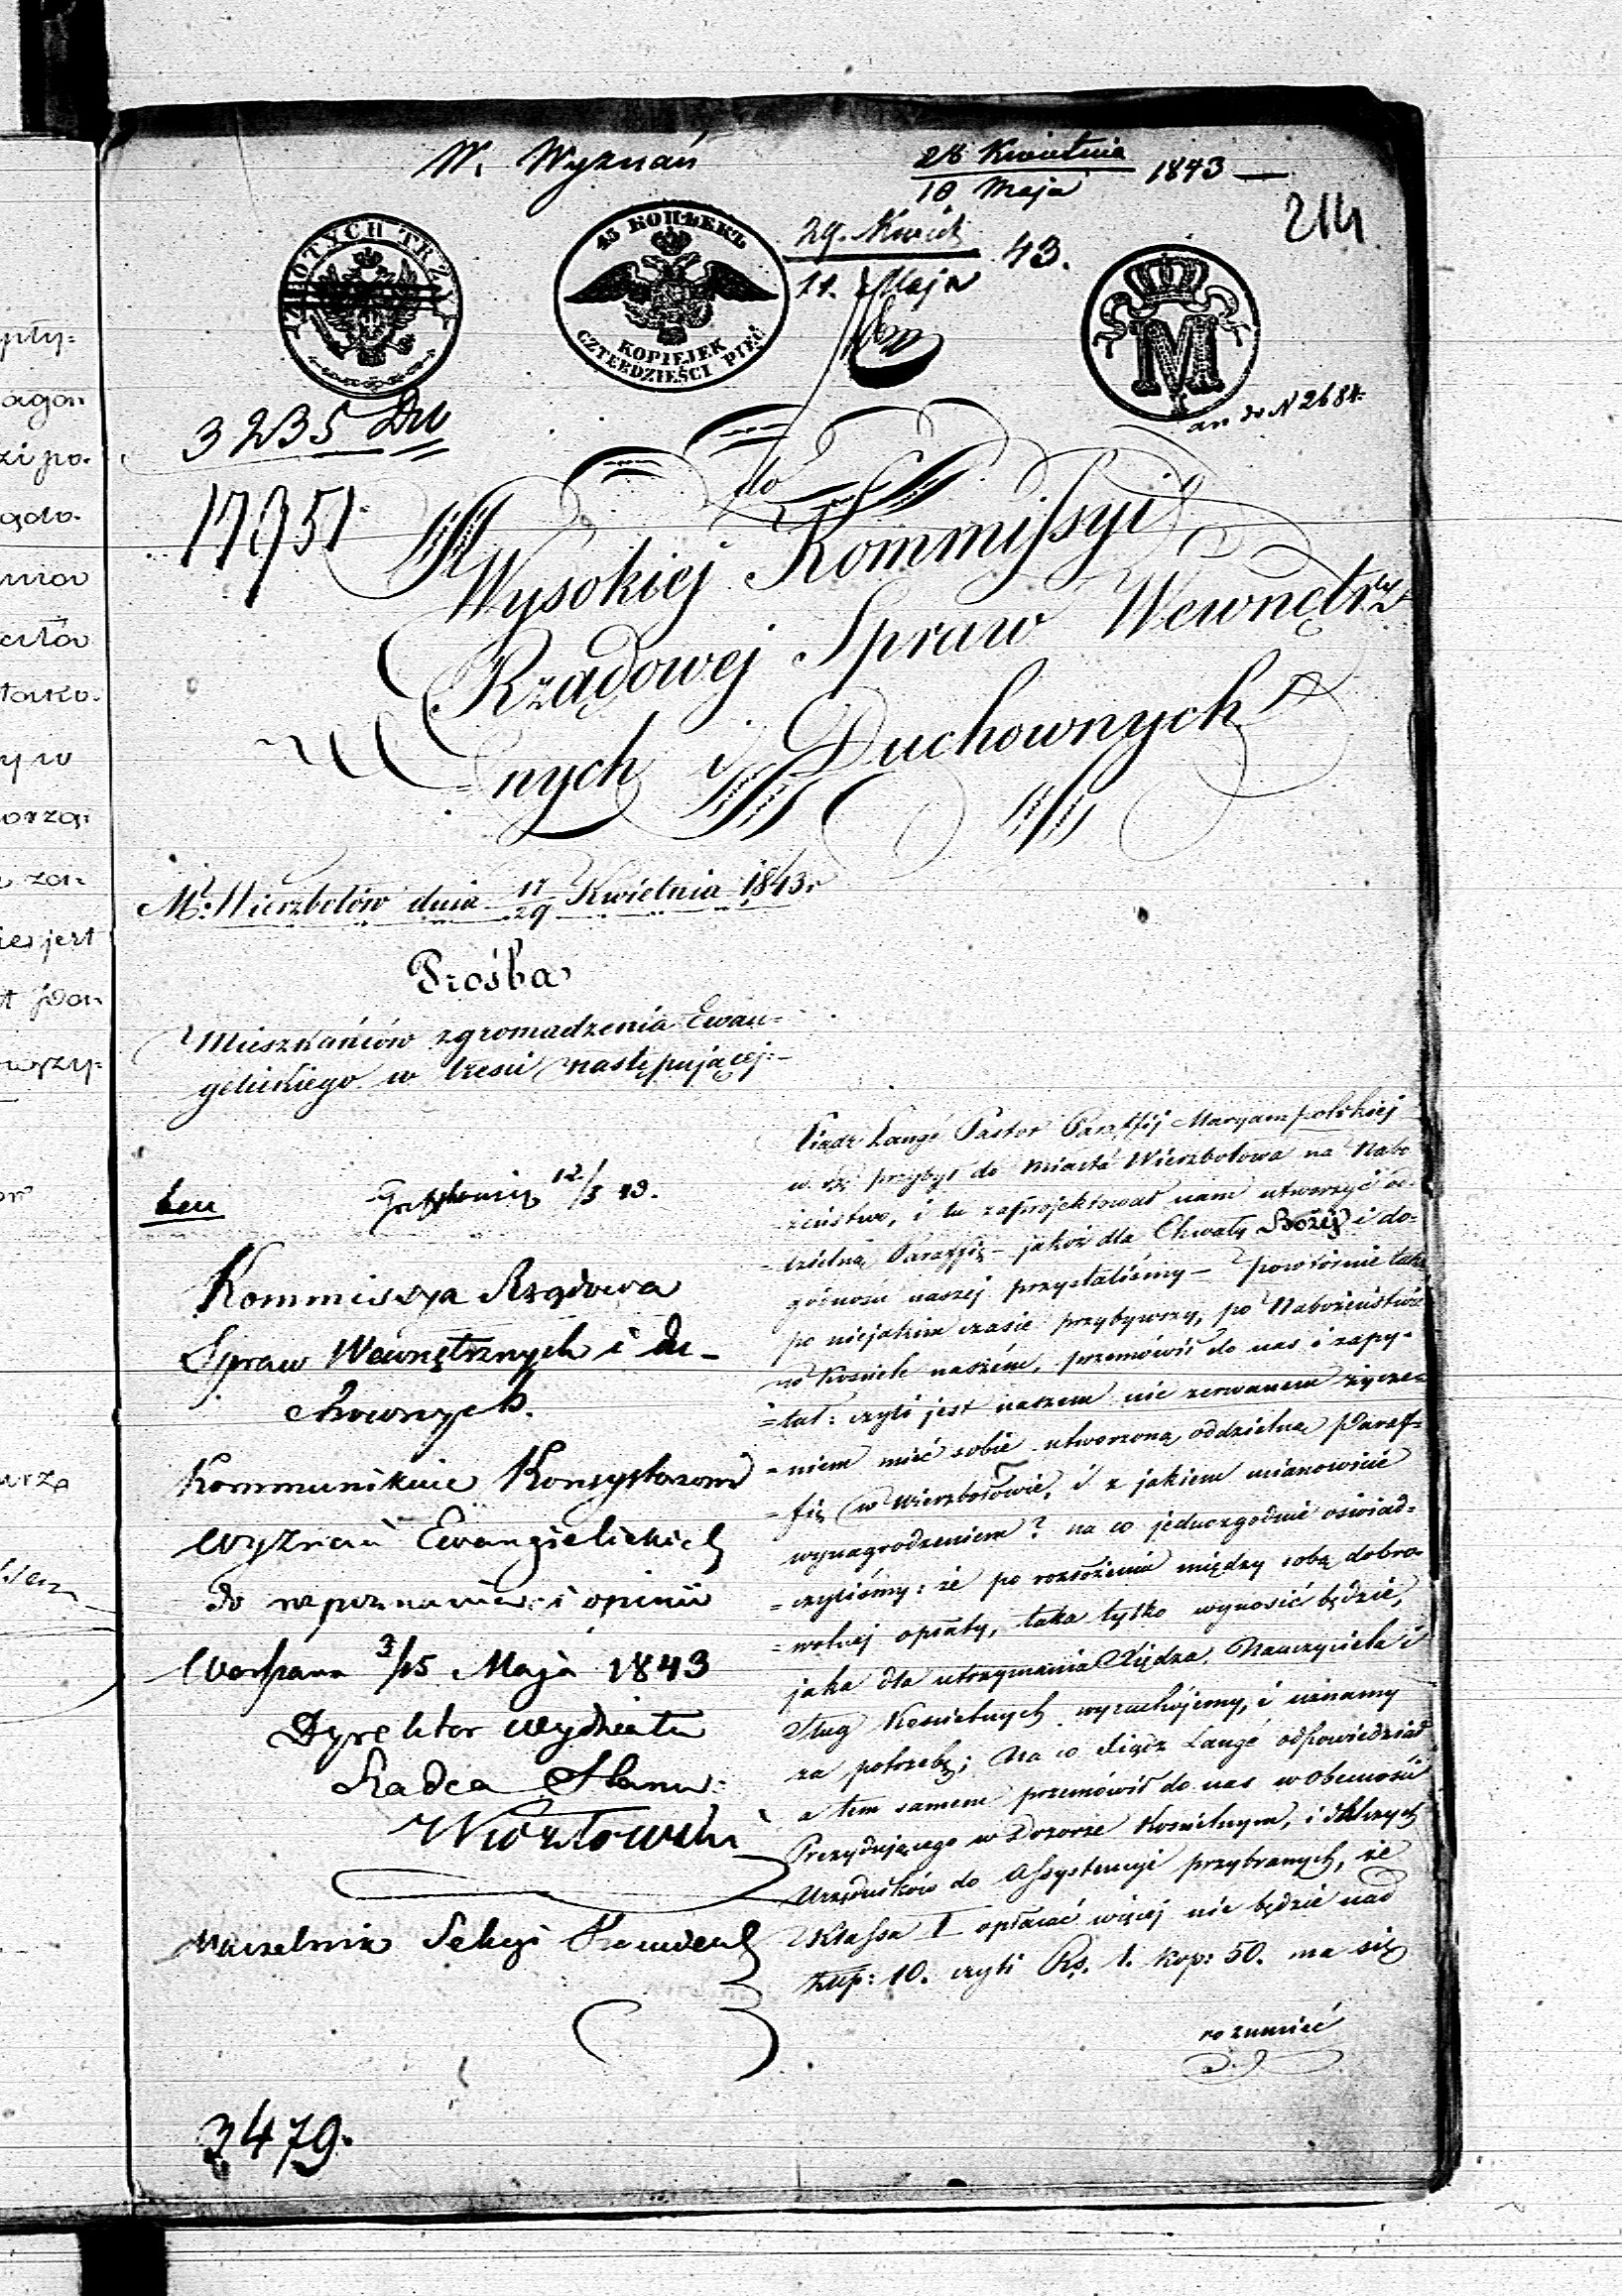 W. Wyznań
28 Kwietnia
10 Maja
1843
214
29. Kwiet
11. Maja
43.
ZŁOTYCH TRZY
45 КОПѢЕКЪ
KOPIEJEK
CZTERDZIEŚCI PIĘĆ
M
ad N 2684
3235
17951
do
Wysokiej Kommissyi
Rządowej Spraw Wewnętrz
=nych i Duchownych
M. Wierzbołów dnia 17/29 Kwietnia 1843r
Prośba
Mieszkańców zgromadzenia Ewan=
gelickiego w treści następującej:
12/5 43.
Kommissya Rządowa
Spraw Wewnętrznych i Du-
chownych.
Kommunikuie Konsystorzowi
wyznań Ewangielickich
do rozpoznania i opinii
Warszawa 3/15 Maja 1843
Dyrektor Wydziału
Radca Stanu
Naczelnik Sekcyi
Xiądz Langé Pastor Paraffij Maryampolskiej
w. r. przybył do Miasta Wierzbołowa na Nabo
żeństwo, i tu zaprojektował nam utworzyć od-
=dzielną Paraffię – jakoż dla Chwały Bożéj i do=
godności naszej przystaliśmy – powtórnie także
po niejakim czasie przybywszy, po Nabożeństwie
w Kościele naszém, przemówił do nas i zapy=
=tał: czyli jest naszem nie zerwanem życze=
=niem mieć sobie utworzoną oddzielną Paraf=
=fię w Wierzbołowie, i z jakiem mianowicie
wynagrodzeniem? na co jednozgodnie oświad=
=czyliśmy: że po rozłożeniu między sobą dobro=
=wolnej opłaty, taka tylko wynosić będzie,
jaka dla utrzymania Xiędza, Nauczyciela i
Sług Kościelnych wyrachujemy, i uznamy
za potrzebę; Na co Xiądz Langé odpowiedział
a tem samem przemówił do nas w obecności
Prezydującego w Dozorze Kościelnym, i dalszych
Urzędników do Assystencyi przybranych, że
Klassa I opłacać więcej nie będzie nad
złp: 10. czyli Rs. 1. kop: 50. ma się
rozumieć
3479.